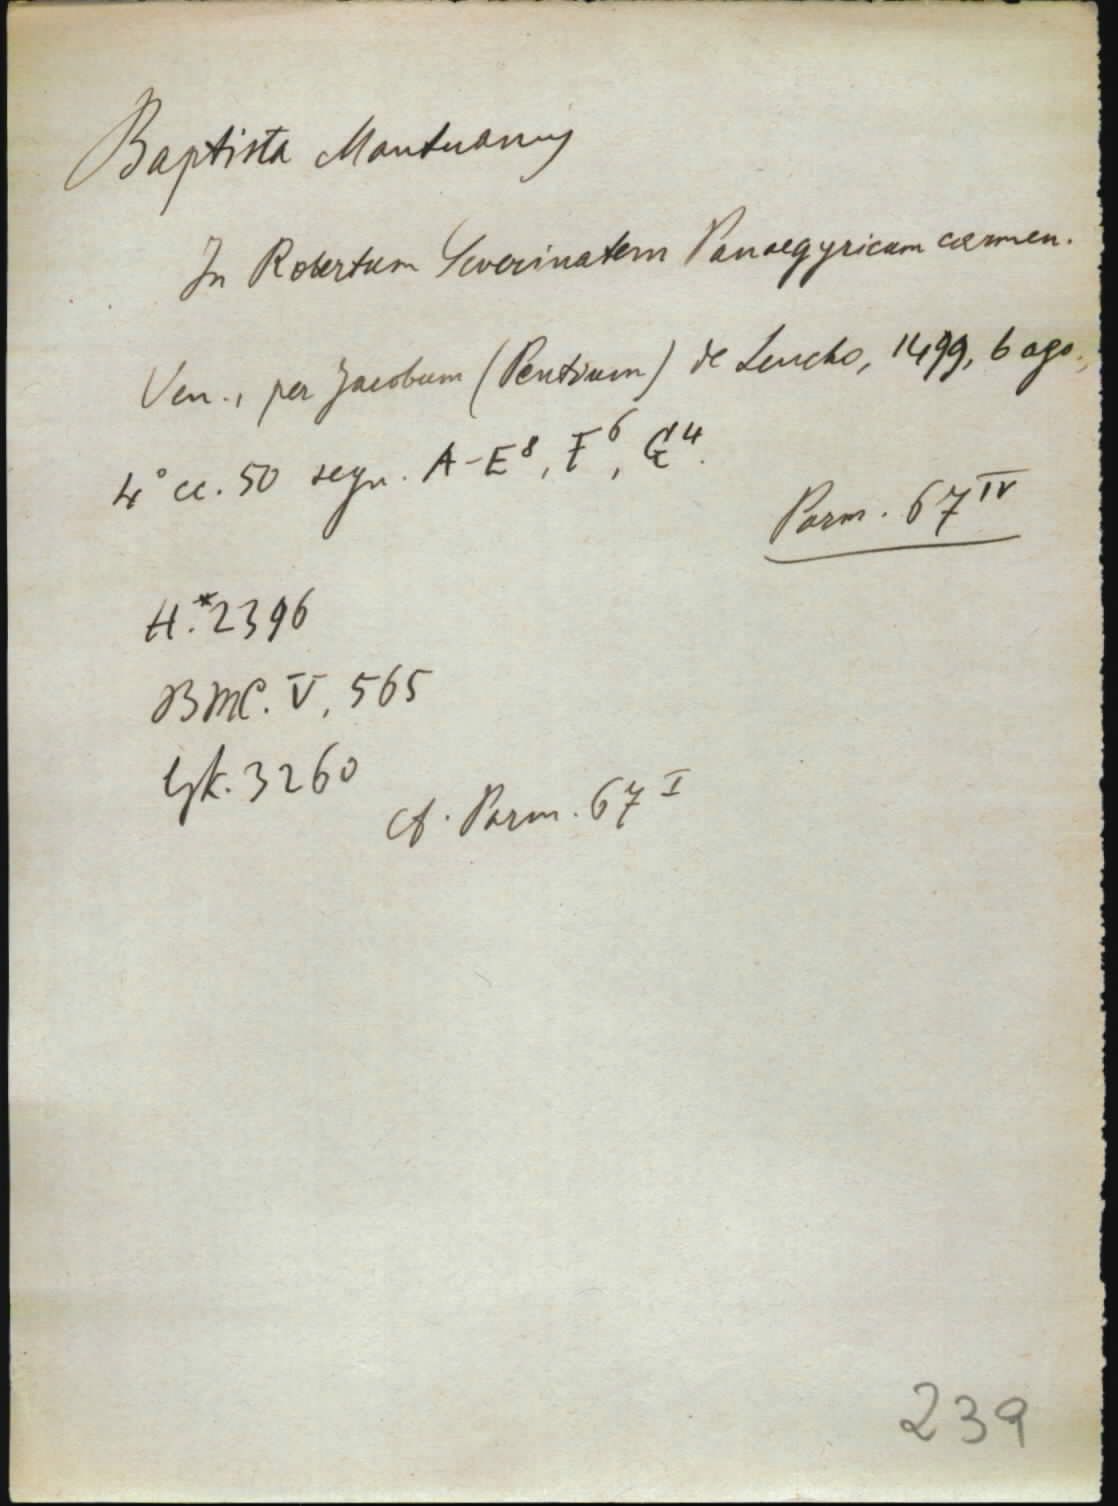 Baptista Mantuanus
In Robertum Severinatem Panaegyricum carmen.
Ven., per Jacobum (Pentium) de Leucho, 1499, 6 ago.,
4° cc. 50 segn. A-E⁸, F⁶, G⁴.
Parm. 67 IV
H.*2396
BMC. V, 565
Gk. 3260
cf. Parm. 67 I
239